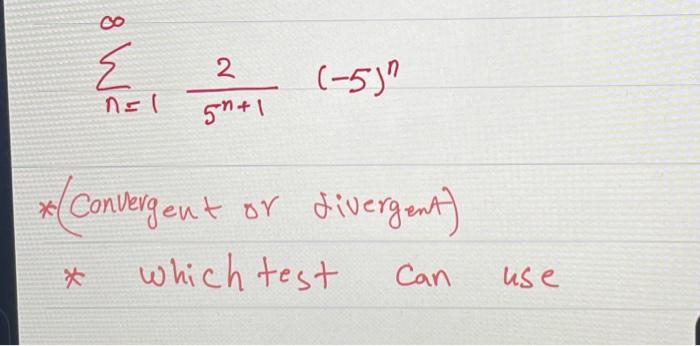 ∞
Σ 2 (-5)ⁿ
n=1 5ⁿ⁺¹
*(Convergent or divergent)
* which test can use